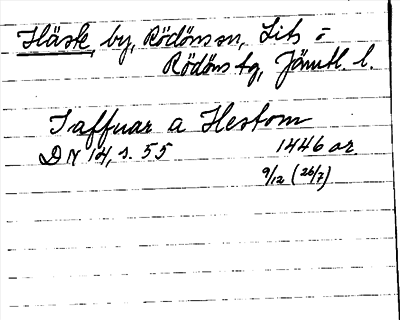 Häste, by, Rödöns sn, Lits o
Rödöns tg, Jämtl. l.
Taffuar a Hestom
DN 14, s. 55 1446 or
9/12 (26/7)